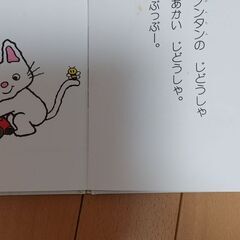 ノンタンの じどうしゃ
あかい じどうしゃ。
ぶっぶー。